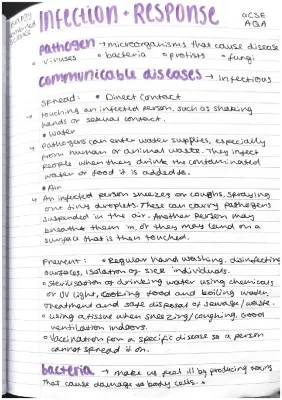 BIOLOGY
COMBINED
SCIENCE
INFECTION + RESPONSE
GCSE
AQA
pathogen → microorganisms that cause disease
• viruses • bacteria • protists • fungi
communicable diseases → infectious
Spread: • Direct Contact
↳ touching an infected person, such as shaking
hands or sexual contact.
• Water
↳ Pathogens can enter water supplies, especially
from human or animal waste. They infect
people when they drink the contaminated
water or food it is added to.
• Air
↳ An infected person sneezes or coughs, spraying
out tiny droplets. These can carry pathogens
suspended in the air. Another person may
breathe them in, or they may land on a
surface that is then touched.
Prevent: • Regular hand washing, disinfecting
surfaces, isolation of sick individuals.
• Sterilisation of drinking water using chemicals
or UV light, cooking food and boiling water.
Treatment and safe disposal of sewage/waste.
• Using a tissue when sneezing/coughing, Good
ventilation indoors.
• Vaccination for a specific disease so a person
cannot spread it on.
bacteria → make us feel ill by producing toxins
that cause damage to body cells.